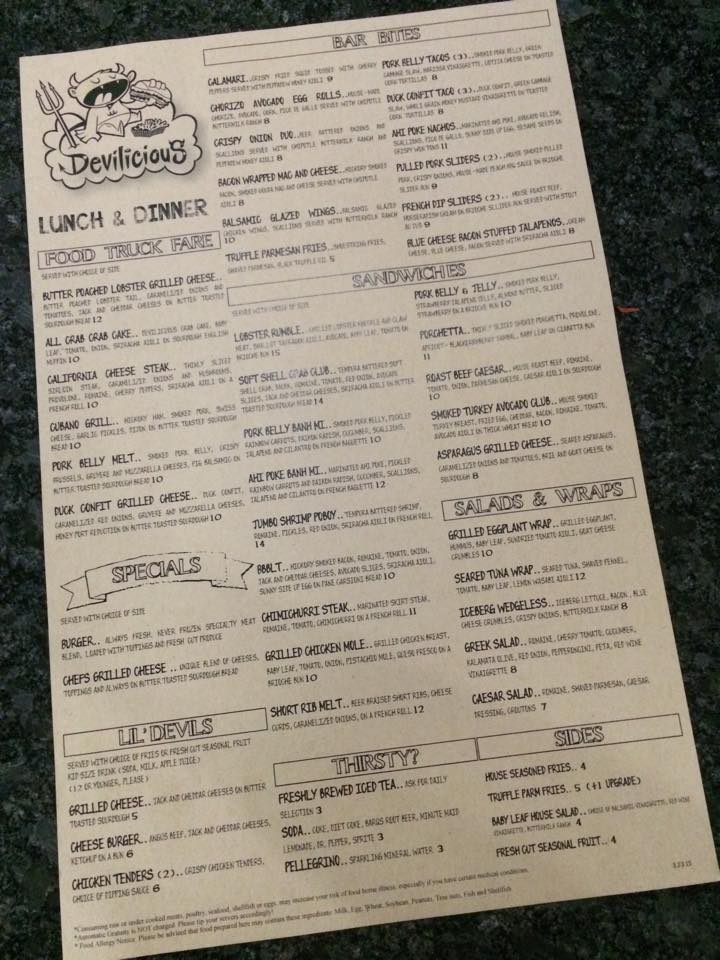 Devilicious
LUNCH & DINNER
FOOD TRUCK FARE
SERVED WITH CHOICE OF SIDE
BUTTER POACHED LOBSTER GRILLED CHEESE..
BUTTER POACHED LOBSTER TAIL, CARAMELIZED ONIONS AND
TOMATOES, JACK AND CHEDDAR CHEESES ON BUTTER TOASTED
SOURDOUGH BREAD 12
ALL CRAB CRAB CAKE.. DEVILICIOUS CRAB CAKE, BABY
LEAF, TOMATO, ONION, SRIRACHA AIOLI ON SOURDOUGH ENGLISH
MUFFIN 10
CALIFORNIA CHEESE STEAK.. THINLY SLICED
SIRLOIN STEAK, CARAMELIZED ONIONS AND MUSHROOMS,
PROVOLONE, ROMAINE, CHERRY PEPPERS, SRIRACHA AIOLI ON A
FRENCH ROLL 10
CUBANO GRILL.. HICKORY HAM, SMOKED PORK, SWISS
CHEESE, GARLIC PICKLES, DIJON ON BUTTER TOASTED SOURDOUGH
BREAD 10
PORK BELLY MELT.. SMOKED PORK BELLY, CRISPY
BRUSSELS, GRUYERE AND MOZZARELLA CHEESES, FIG BALSAMIC ON
BUTTER TOASTED SOURDOUGH BREAD 10
DUCK CONFIT GRILLED CHEESE.. DUCK CONFIT,
CARAMELIZED RED ONIONS, GRUYERE AND MOZZARELLA CHEESES,
HONEY PORT REDUCTION ON BUTTER TOASTED SOURDOUGH 10
SPECIALS
SERVED WITH CHOICE OF SIDE
BURGER.. ALWAYS FRESH, NEVER FROZEN SPECIALTY MEAT
BLEND, LOADED WITH TOPPINGS AND FRESH CUT PRODUCE
CHEFS GRILLED CHEESE .. UNIQUE BLEND OF CHEESES,
TOPPINGS AND ALWAYS ON BUTTER TOASTED SOURDOUGH BREAD
LIL' DEVILS
SERVED WITH CHOICE OF FRIES OR FRESH CUT SEASONAL FRUIT
KID SIZE DRINK (SODA, MILK, APPLE JUICE)
(12 OR YOUNGER, PLEASE)
GRILLED CHEESE.. JACK AND CHEDDAR CHEESES ON BUTTER
TOASTED SOURDOUGH 5
CHEESE BURGER.. ANGUS BEEF, JACK AND CHEDDAR CHEESES,
KETCHUP ON A BUN 6
CHICKEN TENDERS (2).. CRISPY CHICKEN TENDERS,
CHOICE OF DIPPING SAUCE 6
BAR BITES
CALAMARI.. CRISPY FRIED SQUID TOSSED WITH CHERRY
PEPPERS SERVED WITH PEPPADEW HONEY AIOLI 9
CHORIZO AVOCADO EGG ROLLS.. HOUSE-MADE
CHORIZO, AVOCADO, CORN, PICO DE GALLO SERVED WITH CHIPOTLE
BUTTERMILK RANCH 8
CRISPY ONION DUO.. BEER BATTERED ONIONS AND
SCALLIONS SERVED WITH CHIPOTLE BUTTERMILK RANCH AND
PEPPADEW HONEY AIOLI 8
BACON WRAPPED MAC AND CHEESE.. HICKORY SMOKED
BACON, SMOKED GOUDA MAC AND CHEESE SERVED WITH CHIPOTLE
AIOLI 8
BALSAMIC GLAZED WINGS.. BALSAMIC GLAZED
CHICKEN WINGS, SCALLIONS SERVED WITH BUTTERMILK RANCH
10
TRUFFLE PARMESAN FRIES.. SHOESTRING FRIES,
SHAVED PARMESAN, BLACK TRUFFLE OIL 5
PORK BELLY TACOS (3).. SMOKED PORK BELLY, GREEN
CABBAGE SLAW, HARISSA VINAIGRETTE, COTIJA CHEESE ON TOASTED
CORN TORTILLAS 8
DUCK CONFIT TACO (3).. DUCK CONFIT, GREEN CABBAGE
SLAW, WHOLE GRAIN HONEY MUSTARD VINAIGRETTE ON TOASTED
CORN TORTILLAS 8
AHI POKE NACHOS.. MARINATED AHI POKE, AVOCADO RELISH,
SCALLIONS, PICO DE GALLO, SUNNY SIDE UP EGG, SESAME SEEDS ON
CRISPY WON TONS 11
PULLED PORK SLIDERS (2).. HOUSE SMOKED PULLED
PORK, CRISPY ONIONS, HOUSE-MADE PEACH BBQ SAUCE ON BRIOCHE
SLIDER BUN 9
FRENCH DIP SLIDERS (2).. HOUSE ROAST BEEF,
HORSERADISH CREAM ON BRIOCHE SLIDER BUN SERVED WITH STOUT
AU JUS 9
BLUE CHEESE BACON STUFFED JALAPENOS.. CREAM
CHEESE, BLUE CHEESE, BACON SERVED WITH SRIRACHA AIOLI 8
SANDWICHES
SERVED WITH CHOICE OF SIDE
LOBSTER RUMBLE.. LOBSTER KNUCKLE AND CLAW
MEAT, SHALLOT TARRAGON AIOLI, AVOCADO, BABY LEAF, TOMATO ON
BRIOCHE BUN 15
SOFT SHELL CRAB CLUB.. TEMPURA BATTERED SOFT
SHELL CRAB, BACON, ROMAINE, TOMATO, RED ONION, AVOCADO
SLICES, JACK AND CHEDDAR CHEESES, SRIRACHA AIOLI ON BUTTER
TOASTED SOURDOUGH BREAD 14
PORK BELLY BANH MI.. SMOKED PORK BELLY, PICKLED
RAINBOW CARROTS, DAIKON RADISH, CUCUMBER, SCALLIONS,
JALAPENO AND CILANTRO ON FRENCH BAGUETTE 10
AHI POKE BANH MI.. MARINATED AHI POKE, PICKLED
RAINBOW CARROTS AND DAIKON RADISH, CUCUMBER, SCALLIONS,
JALAPENO AND CILANTRO ON FRENCH BAGUETTE 12
JUMBO SHRIMP POBOY.. TEMPURA BATTERED SHRIMP,
ROMAINE, PICKLES, RED ONION, SRIRACHA AIOLI ON FRENCH ROLL
14
BBBLT.. HICKORY SMOKED BACON, ROMAINE, TOMATO, ONION,
JACK AND CHEDDAR CHEESES, AVOCADO SLICES, SRIRACHA AIOLI,
SUNNY SIDE UP EGG ON PANE CARSIONI BREAD 10
CHIMICHURRI STEAK.. MARINATED SKIRT STEAK,
ROMAINE, TOMATO, CHIMICHURRI ON A FRENCH ROLL 11
GRILLED CHICKEN MOLE.. GRILLED CHICKEN BREAST,
BABY LEAF, TOMATO, ONION, PISTACHIO MOLE, QUESO FRESCO ON A
BRIOCHE BUN 10
SHORT RIB MELT.. BEER BRAISED SHORT RIBS, CHEESE
CURDS, CARAMELIZED ONIONS, ON A FRENCH ROLL 12
PORK BELLY & JELLY.. SMOKED PORK BELLY,
STRAWBERRY JALAPENO JELLY, ALMOND BUTTER, SLICED
STRAWBERRY ON A BRIOCHE BUN 10
PORCHETTA.. THINLY SLICED PORCHETTA, PROVOLONE,
APRICOT-BLACKBERRY SAMBAL, BABY LEAF ON CIABATTA BUN
11
ROAST BEEF CAESAR.. HOUSE ROAST BEEF, ROMAINE,
TOMATO, ONION, PARMESAN CHEESE, CAESAR AIOLI ON SOURDOUGH
10
SMOKED TURKEY AVOCADO CLUB.. HOUSE SMOKED
TURKEY BREAST, FRIED EGG, CHEDDAR, BACON, ROMAINE, TOMATO,
AVOCADO AIOLI ON THICK WHEAT BREAD 10
ASPARAGUS GRILLED CHEESE.. SEARED ASPARAGUS,
CARAMELIZED ONIONS AND TOMATOES, BRIE AND GOAT CHEESE ON
SOURDOUGH 8
SALADS & WRAPS
GRILLED EGGPLANT WRAP.. GRILLED EGGPLANT,
HUMMUS, BABY LEAF, SUNDRIED TOMATO AIOLI, GOAT CHEESE
CRUMBLES 10
SEARED TUNA WRAP.. SEARED TUNA, SHAVED FENNEL,
TOMATO, BABY LEAF, LEMON WASABI AIOLI 12
ICEBERG WEDGELESS.. ICEBERG LETTUCE, BACON, BLUE
CHEESE CRUMBLES, CRISPY ONIONS, BUTTERMILK RANCH 8
GREEK SALAD.. ROMAINE, CHERRY TOMATO, CUCUMBER,
KALAMATA OLIVE, RED ONION, PEPPERONCINI, FETA, RED WINE
VINAIGRETTE 8
CAESAR SALAD.. ROMAINE, SHAVED PARMESAN, CAESAR
DRESSING, CROUTONS 7
THIRSTY?
FRESHLY BREWED ICED TEA.. ASK FOR DAILY
SELECTION 3
SODA.. COKE, DIET COKE, BARQS ROOT BEER, MINUTE MAID
LEMONADE, DR. PEPPER, SPRITE 3
PELLEGRINO.. SPARKLING MINERAL WATER 3
SIDES
HOUSE SEASONED FRIES.. 4
TRUFFLE PARM FRIES.. 5 (+1 UPGRADE)
BABY LEAF HOUSE SALAD.. CHOICE OF BALSAMIC VINAIGRETTE, RED WINE
VINAIGRETTE, BUTTERMILK RANCH 4
FRESH CUT SEASONAL FRUIT.. 4
3.23.15
*Consuming raw or under cooked meats, poultry, seafood, shellfish or eggs, may increase your risk of food borne illness, especially if you have certain medical conditions.
*Automatic Gratuity is NOT charged. Please tip your servers accordingly!
* Food Allergy Notice: Please be advised that food prepared here may contain these ingredients: Milk, Egg, Wheat, Soybean, Peanuts, Tree nuts, Fish and Shellfish